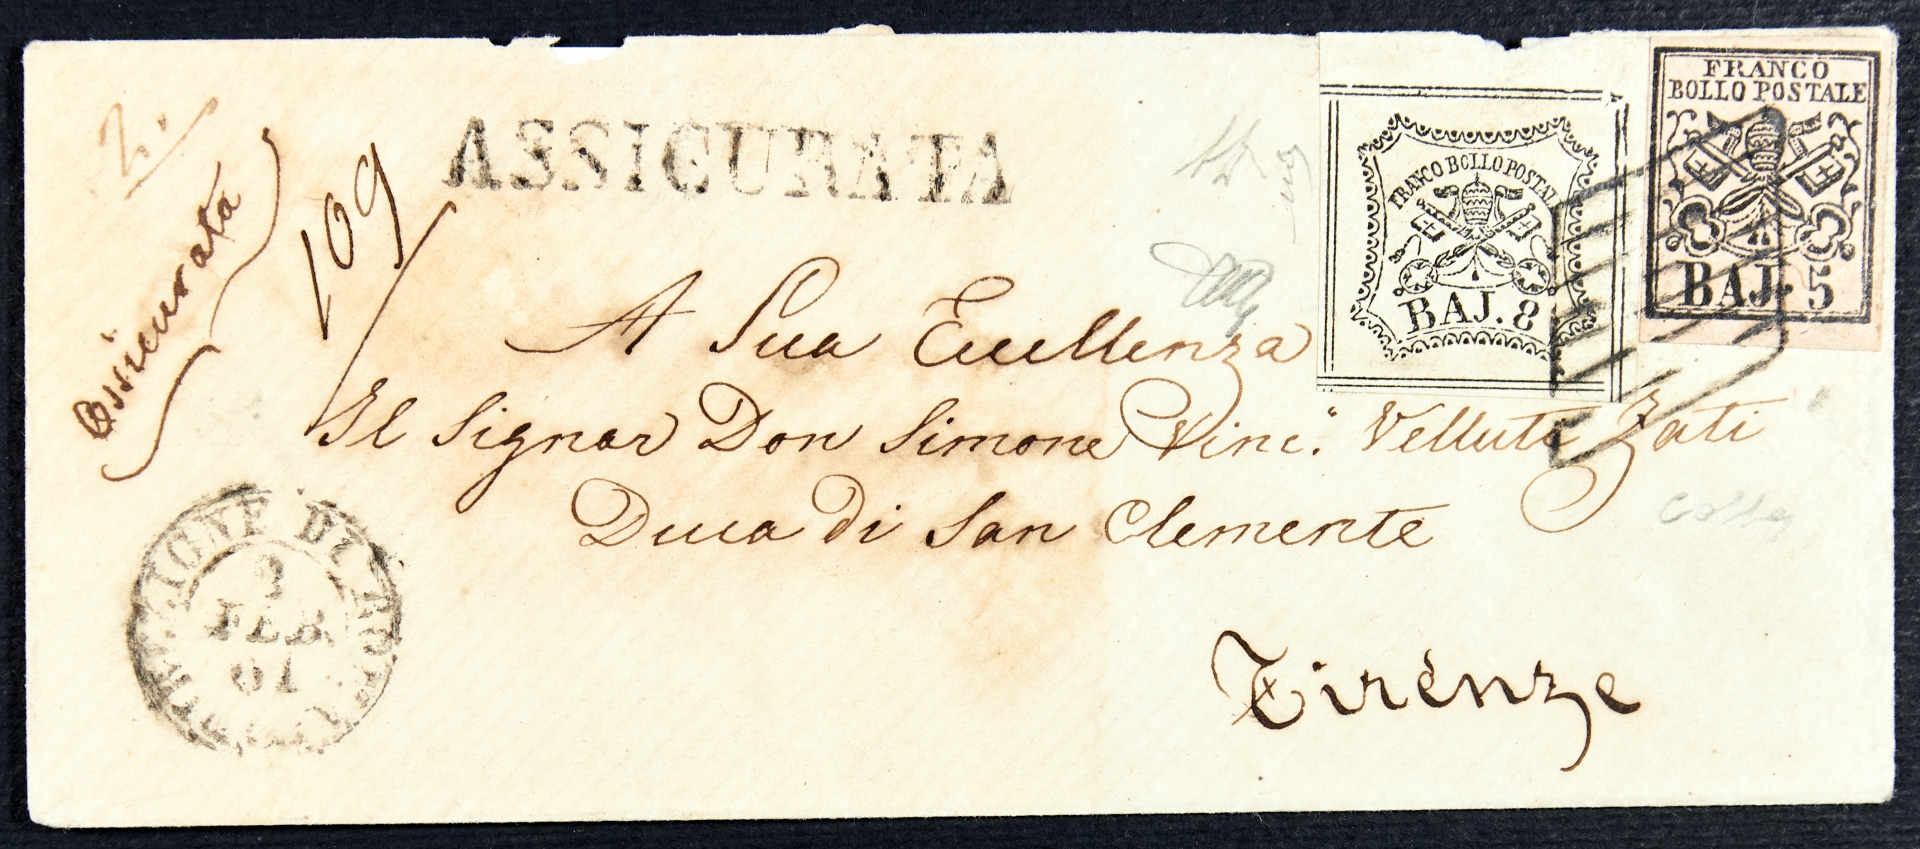 Assicurata
109
ASSICURATA
FRANCO BOLLO POSTAL
BAJ. 8
FRANCO
BOLLO POSTALE
BAJ. 5
A Sua Eccellenza
Il Signor Don Simone Vinc.° Velluti Zati
Duca di San Clemente
Firenze
DI ROMA
FEB
61